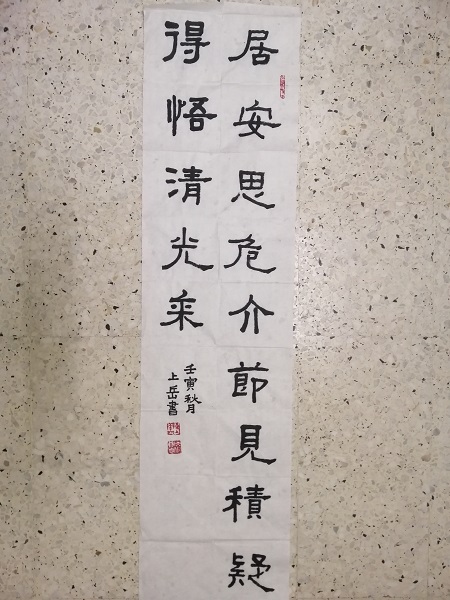 居安思危介節見積疑
得悟清光采
壬寅秋月
上岳書